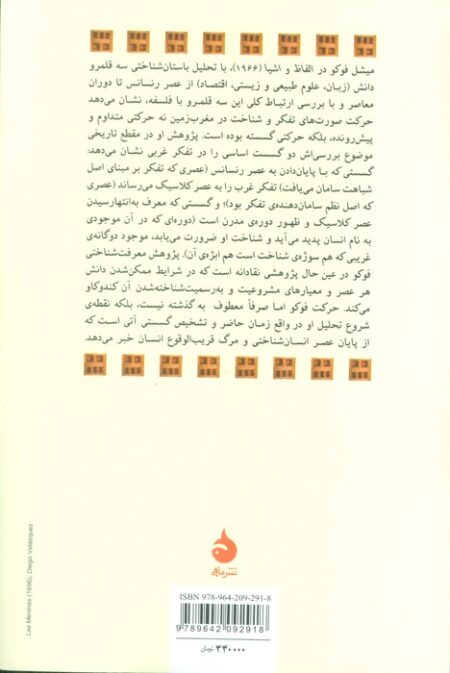 میشل فوکو در الفاظ و اشیا (۱۹۶۶)، با تحلیل باستان‌شناختی سه قلمرو
دانش (زبان، علوم طبیعی و زیستی، اقتصاد) از عصر رنسانس تا دوران
معاصر و با بررسی ارتباط کلی این سه قلمرو با فلسفه، نشان می‌دهد
حرکت صورت‌های تفکر و شناخت در مغرب‌زمین نه حرکتی متداوم و
پیش‌رونده، بلکه حرکتی گسسته بوده است. پژوهش او در مقطع تاریخی
موضوع بررسی‌اش دو گسست اساسی را در تفکر غربی نشان می‌دهد:
گسستی که با پایان‌دادن به عصر رنسانس (عصری که تفکر بر مبنای اصل
شباهت سامان می‌یافت) تفکر غرب را به عصر کلاسیک می‌رساند (عصری
که اصل نظم سامان‌دهنده‌ی تفکر بود)؛ و گسستی که معرف به‌انتهارسیدن
عصر کلاسیک و ظهور دوره‌ی مدرن است (دوره‌ای که در آن موجودی
به نام انسان پدید می‌آید و شناخت او ضرورت می‌یابد، موجود دوگانه‌ی
غریبی که هم سوژه‌ی شناخت است هم ابژه‌ی آن). پژوهش معرفت‌شناختی
فوکو در عین حال پژوهشی نقادانه است که در شرایط ممکن‌شدن دانش
هر عصر و معیارهای مشروعیت و به‌رسمیت‌شناخته‌شدن آن کندوکاو
می‌کند. حرکت فوکو اما صرفاً معطوف به گذشته نیست، بلکه نقطه‌ی
شروع تحلیل او در واقع زمان حاضر و تشخیص گسستی آتی است که
از پایان عصر انسان‌شناختی و مرگ قریب‌الوقوع انسان خبر می‌دهد.
Las Meninas (1656), Diego Velázquez
نشر ماهی
ISBN 978-964-209-291-8
9 789642 092918
۴۴۰۰۰۰ تومان